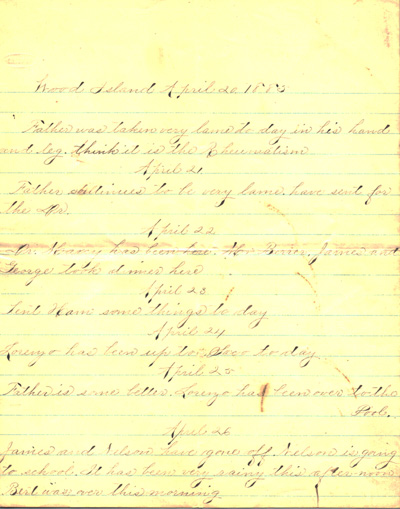 Wood Island April 20 1883
Father was taken very lame to day in his hand
and leg. think it is the Rheumatism
April 21
Father continues to be very lame. have sent for
the Dr.
April 22
Dr. has been here. Mr. James and
George took dinner here
April 23
Sent Ham some things to day
April 24
Lorenzo has been up to to day
April 25
Father is some better. Lorenzo has been over to the
Pool.
April 26
James and Nelson have gone off. Nelson is going
to school. It has been very rainy this after noon
Bert was over this morning